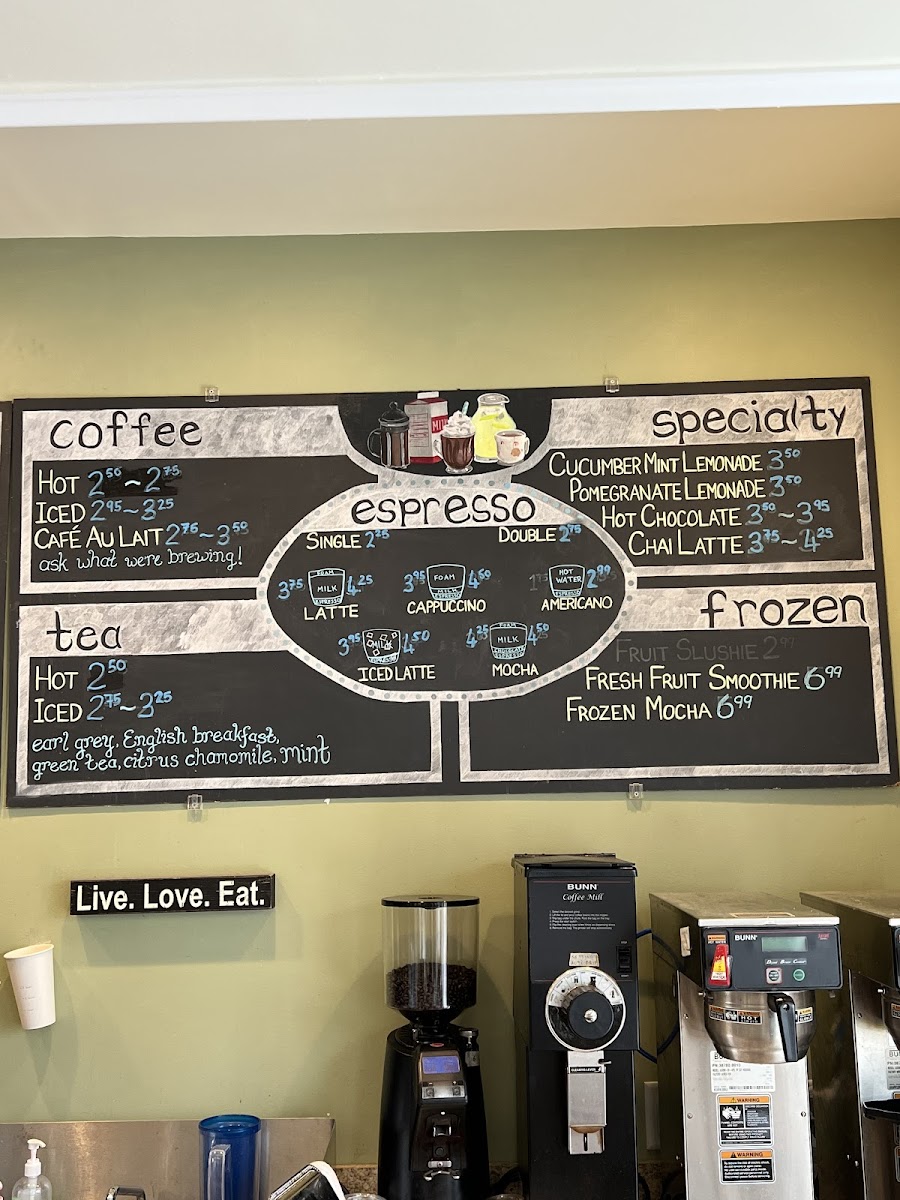 coffee
HOT 2.50 ~ 2.75
ICED 2.95 ~ 3.25
CAFÉ AU LAIT 2.75 ~ 3.50
ask what were brewing!
tea
HOT 2.50
ICED 2.75 ~ 3.25
earl grey, English breakfast,
green tea, citrus chamomile, mint
espresso
SINGLE 2.25 DOUBLE 2.75
FOAM
MILK
ESPRESSO
3.75 4.25
LATTE
FOAM
MILK
ESPRESSO
3.95 4.50
CAPPUCCINO
HOT
WATER
ESPRESSO
2.99
AMERICANO
MILK
ESPRESSO
3.95 4.50
ICED LATTE
FOAM
MILK
CHOCOLATE
ESPRESSO
4.25 4.50
MOCHA
specialty
CUCUMBER MINT LEMONADE 3.50
POMEGRANATE LEMONADE 3.50
HOT CHOCOLATE 3.50 ~ 3.95
CHAI LATTE 3.75 ~ 4.25
frozen
FRUIT SLUSHIE 2.99
FRESH FRUIT SMOOTHIE 6.99
FROZEN MOCHA 6.99
Live. Love. Eat.
BUNN
Coffee Mill
BUNN
HOT
WARNING
WARNING